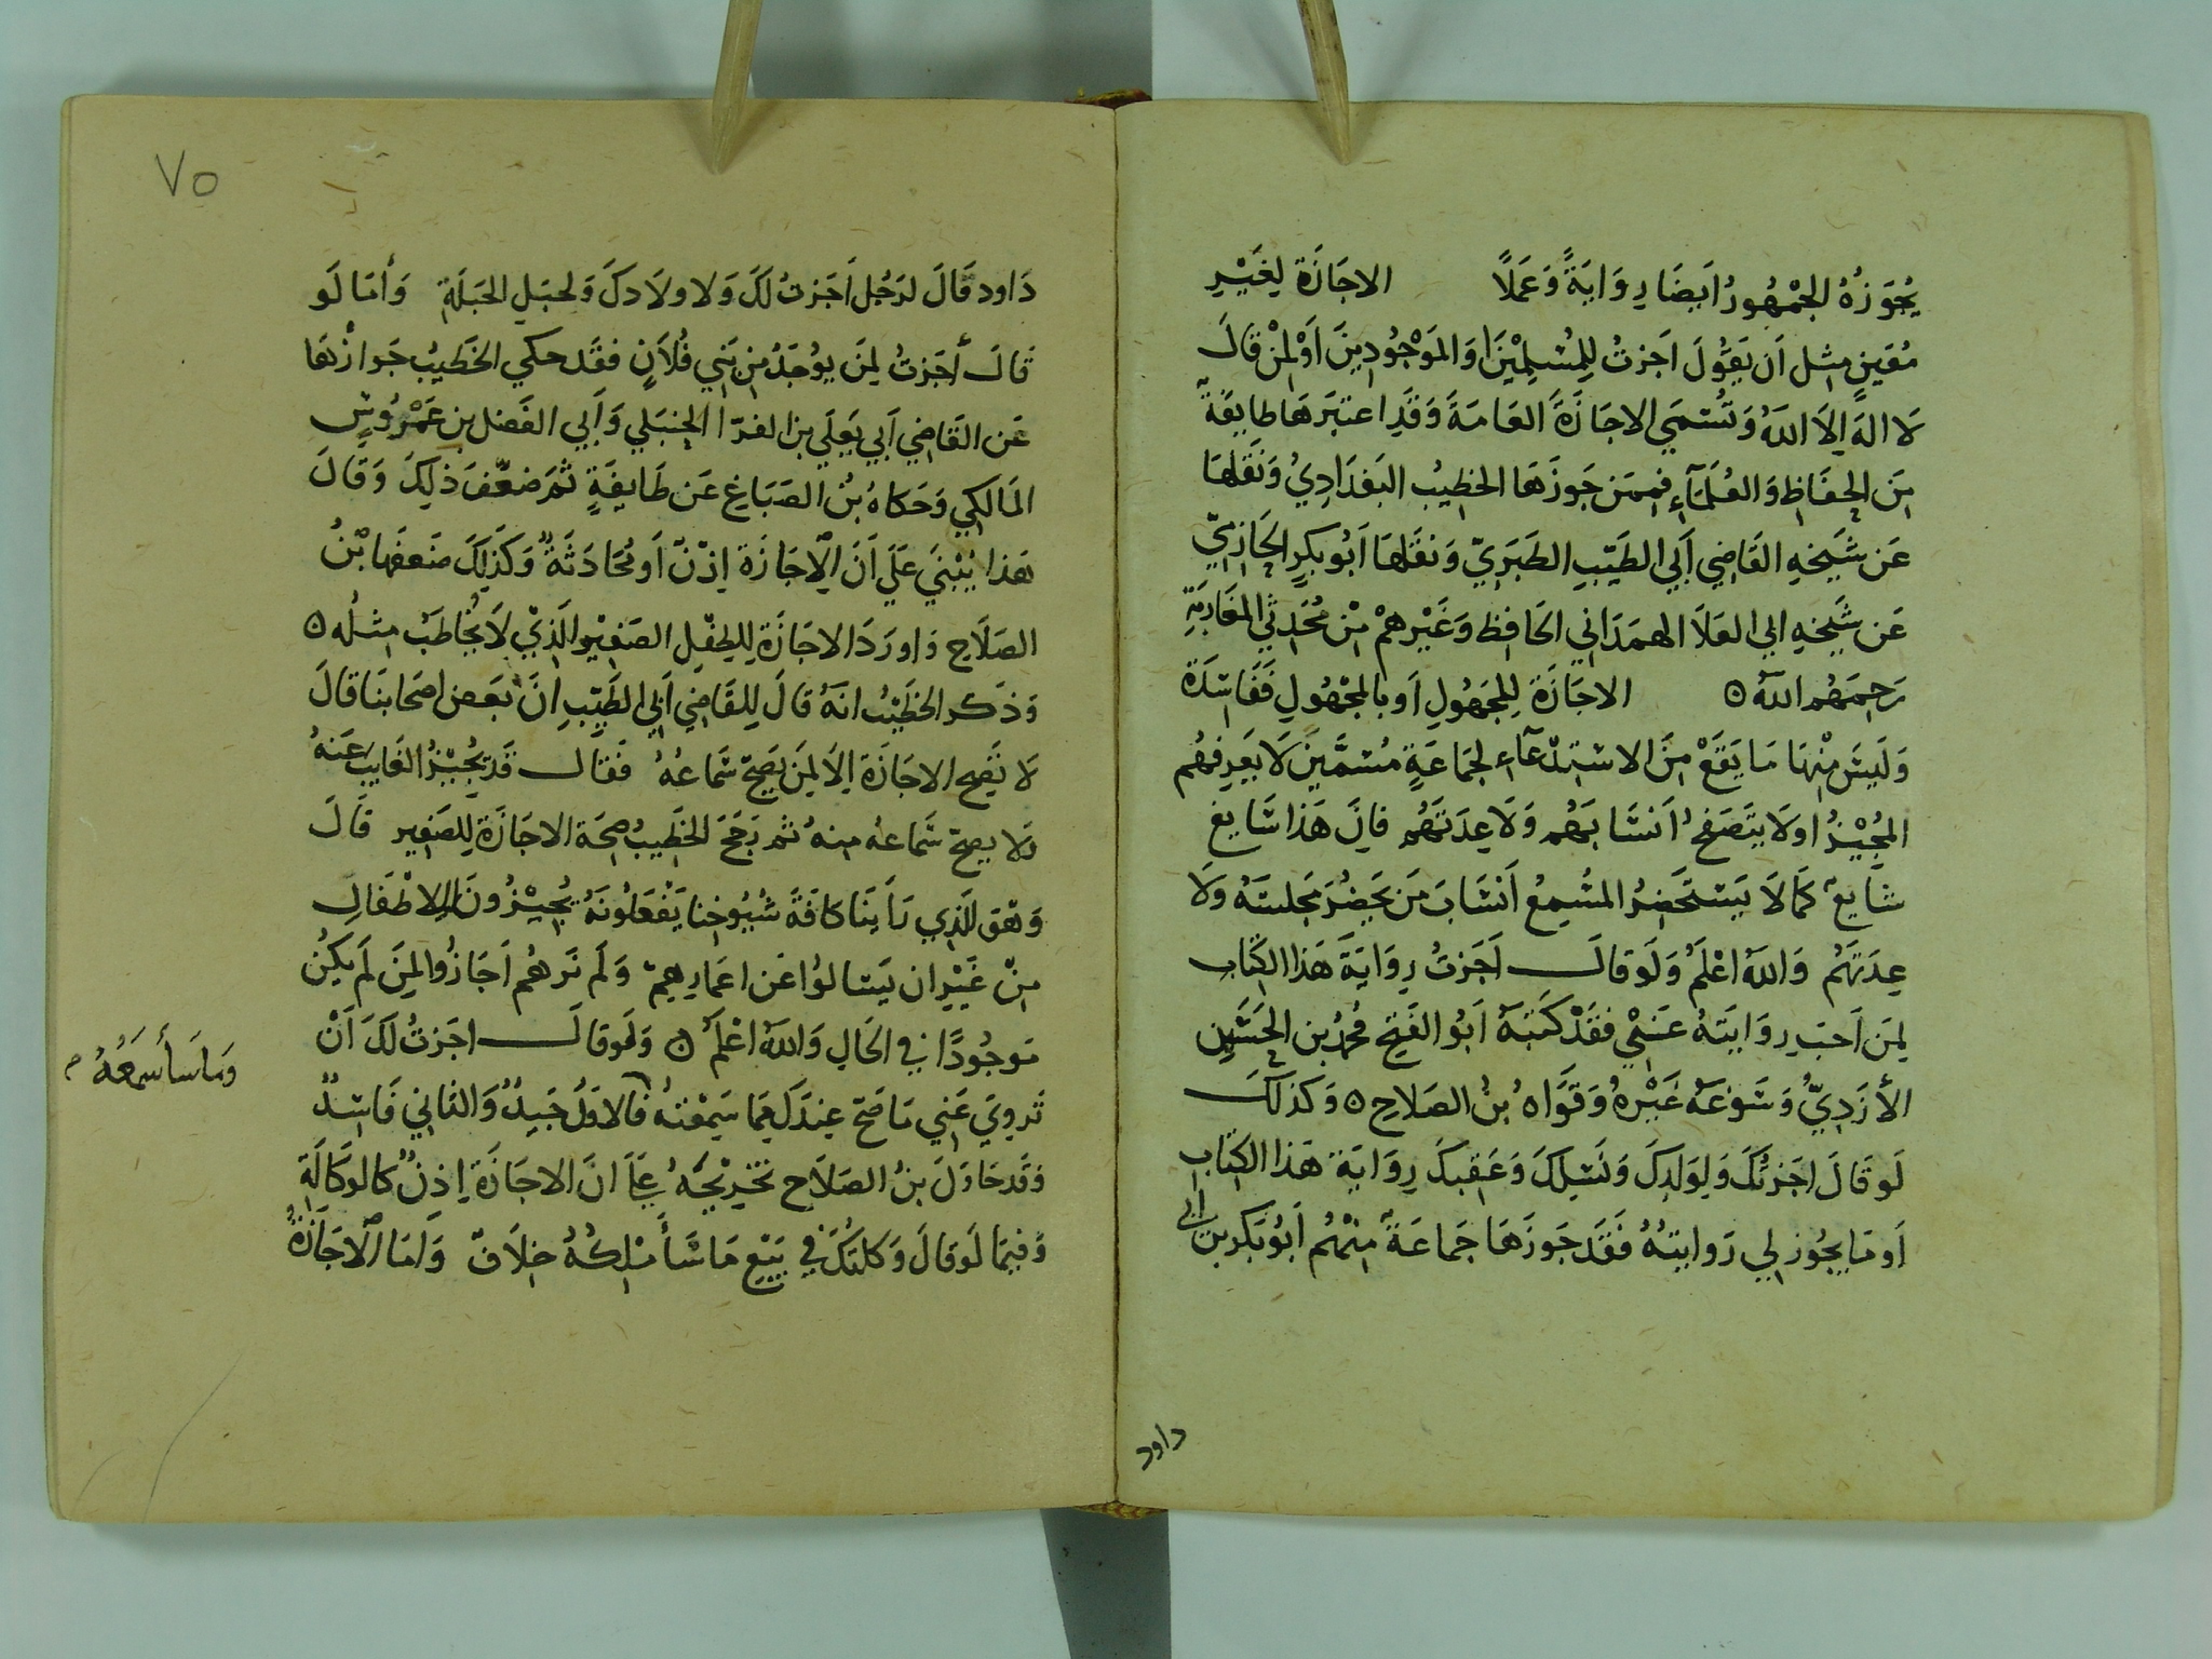 يُجَوِّزُهُ الجُمْهُورُ اَيضَا رِوَايَةً وَعَمَلًا الاجَازَة لِغَيْرِ
مُعَيَنٍ مِثل اَن يَقُولَ اَجَزتُ لِلمُسْلِمْيَنَ اوَ المَوْجُودِينَ اَوْلمَنْ قالَ
لَا الهَ اِلَا اللهُ وَتُسَمَي الاجَازَةَ العَامَةَ وَقَدِ اعتبَرَهَا طايفَةٌ
مِنَ الحفَاظِ وَالعُلمَآءِ فممَن جَوزَهَا الخطِيبُ البَغدَادِيُ وَنَقَلهَا
عَن شَيخهِ القَاضِي اَبي الطَيّبِ الطَبَرِيّ وَنقَلهَا اَبُو بكرٍ الحَازِمِيّ
عَن شَيخهِ ابي العَلَا الهمَدَاني الحَافِظ وَغَيْرهمْ مِنْ مُحَدِثي المغَاربَةِ
رَحِمَهُم اللهُ ه الاجَازَة لِلمجَهُولِ اَو بالمجْهُولِ فَفَاسِدَة
وَلَيسَ مِنْهَا مَا يَقَعْ مِنَ الاستِدْعَآءِ لجمَاعَةٍ مُسَمَّيِنَ لَا يَعرِفهُم
المُجِيْزُ اولَا يتَصَفحُ اَنسَابَهُم وَلَا عِدَتَهُم فانَ هَذا سَايغ
شَايعٌ كمَا لَا يَستَحضِرُ المسُمِعُ اَنسَابَ مَن يَحضُرَ مَجلسَهُ وَلَا
عِدَتَهُم وَاللهُ اعْلَمُ وَلَو قالَ اَجَزتُ رِوَايَةَ هَذا الكِتاب
لِمَن اَحَبَ رِوَايَتَهُ عَنِي فَقَدْ كَتبَهُ اَبُو الفَتح مُحمدُ بن الحُسَين
الأزَدِيُّ وَسَوَّغهُ غَيْرهُ وَقَوَّاهُ بنُ الصَلاحِ ه وَكذلكَ
لَو قَالَ اجَزتُكَ وَلِوَلدِكَ وَنَسلِكَ وَعَقِبكَ رِوَايَة هَذا الكِتاب
اَو مَا يجُوز لي رَوايتهُ فَقَد جَوزَهَا جَماعَةٌ مِنْهُم اَبُو بَكرِ بن ابي
داود
٧٥
دَاود قَالَ لرَجُل اَجَزتُ لكَ وَلاولَادكَ وَلحبَلِ الحَبَلَة وَأمَا لَو
قَالَ أجَزتُ لِمنَ يوُجَدُ مِن بَنِي فُلَانٍ فقَد حكي الخَطِيبُ جَوازَهَا
عَن القَاضِي اَبي يَعلي بن الفرّا الحنبَلي وَاَبي الفَضل بن عَمْرُوسٍ
المَالكِي وَحَكاهُ بنُ الصَبَاغِ عَن طَايفَةٍ ثمَ ضعَّفَ ذلِكَ وَقَالَ
هَذا يُبْنَي عَلَي اَنَ الِاجَازَة اِذْنٌ اَو مُحَادَثَةٌ وَكَذلِكَ ضَعفَهَا بْنُ
الصَلَاح وَاورَدَ الاجَازَة لِلطِفْلِ الصَغِيْرِ الَّذِيْ لَا يُخاطَبْ مِثلُه ه
وَذكَر الخَطِيْبُ انَهُ قالَ لِلقَاضِي اَبي الطَيّبِ انَ بَعض اصحَابنَا قالَ
لَا تَصِح الاجَازَة اِلَا لِمَن يَصِحَّ سَماعُهُ فقال قَد يُجيْزُ الغَايب عَنهُ
وَلا يصحّ سَماعهُ منهُ ثم رَجَحَ الخَطِيبُ صِحَة الاجَازَة لِلصَغِير قَالَ
وَهوَ الَّذِي رَاَينَا كافَةً شُيُوخنا يَفْعَلُونَهُ يُجِيْزُونَ لِلاطْفَالِ
مِنْ غَيْرِ ان يَسَالوُا عَن اعمَارِهِم وَلَم نَرهُم اَجَازُوا لِمَنَ لَم يَكُن
مَوجُودًا في الحَالِ وَاللهُ اعْلَمُ ه وَلَوقالَ اجَزتُ لَكَ اَنْ
تَروِيَ عَنِي مَا صَحَ عِندَكَ مِمَا سَمِعْتهُ فالاوَلُ جَيدٌ وَالثَاني فَاسِدٌ
وَمَا سَأَسمَعُهُ م
وَقَد حَاوَلَ بنُ الصَلَاح تَخرِيْجَهُ عَلَي انَ الاجَازَة اِذنٌ كالوَكَالَةِ
وَفيمَا لَو قالَ وَكلتكَ في بَيْعِ مَا سَأَمْلِكهُ خِلَافٌ وَامَا الِاجَازَةُ